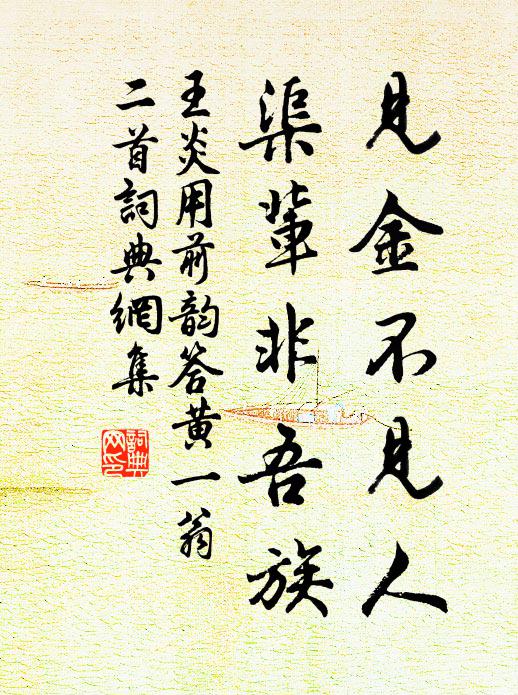 見金不見人
渠輩非吾族
王炎用前韵答黄一翁
二首詞典網集
詞典
网印